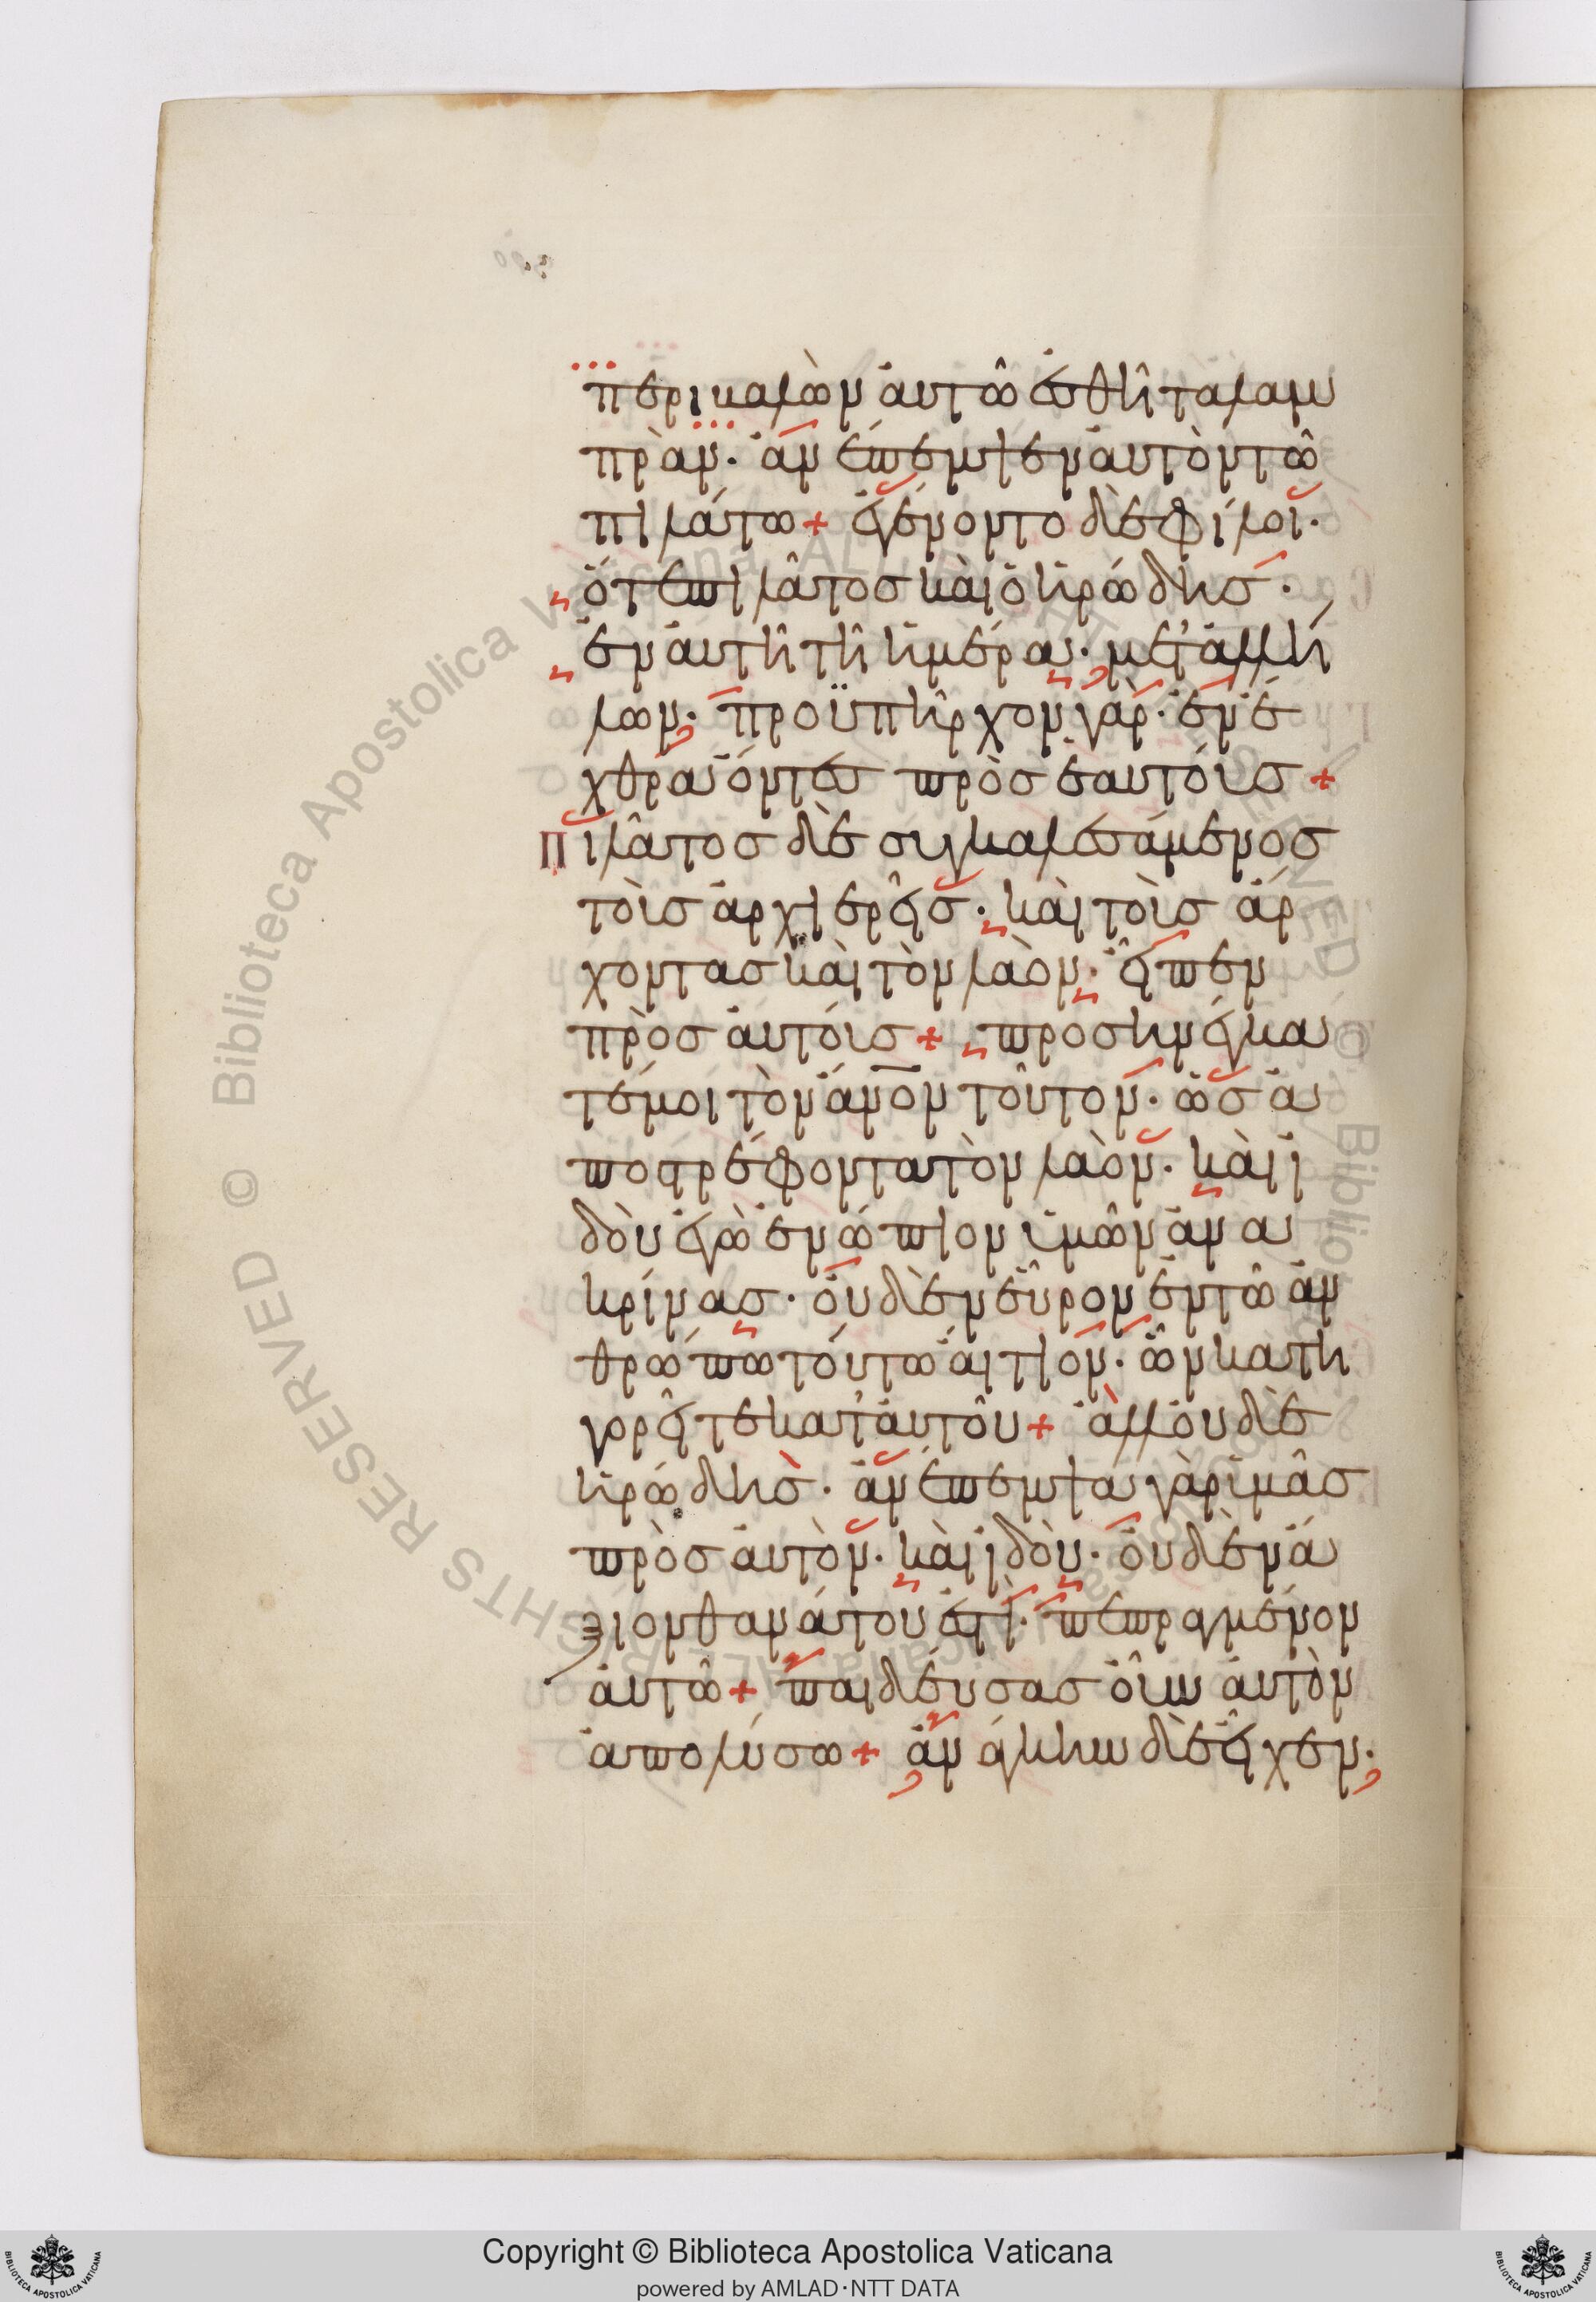 περιβαλὼν ἀυτῶ ἐσθῆτα λαμ
πρὰν· ἀνέπεμψεν ἀυτὸν τῶ
πιλάτω + ἐγένοντο δὲ φίλοι·
ὅτε πιλᾶτος καὶ ὁ ἡρώδης·
ἐν ἀυτῆ τῆ ἡμέρα· μετ' ἀλλή
λων· προϋπῆρχον γὰρ· ἐν ἔ
χθρα ὄντες πρὸς ἑαυτόυς +
Πιλᾶτος δὲ συγκαλεσάμενος
τοὺς ἀρχιερεῖς· καὶ τοὺς ἄρ
χοντας καὶ τὸν λαὸν· εἶπεν
πρὸς ἀυτόυς + προσηνέγκα
τέ μοι τὸν ἄνον τοῦτον· ὡς ἀ
ποστρέφοντα τὸν λαὸν· καὶ ἰ
δοὺ ἐγὼ ἐνώπιον ὑμῶν ἀνα
κρίνας· οὐδὲν εὗρον ἐν τῶ ἀν
θρώπω τούτω ἄιτιον· ὧν κατη
γορεῖτε κατ' ἀυτοῦ + ἀλλ' οὐδὲ
ἡρώδης· ἀνέπεμψα γὰρ ὑμᾶς
πρὸς ἀυτὸν· καὶ ἰδοὺ· οὐδὲν ἄ
ξιον θανάτου ἐστὶ· πεπραγμένον
ἀυτῶ + παιδεύσας οὖν ἀυτὸν
ἀπολύσω + ἀνάγκην δὲ εἶχεν·
Copyright © Biblioteca Apostolica Vaticana
powered by AMLAD·NTT DATA